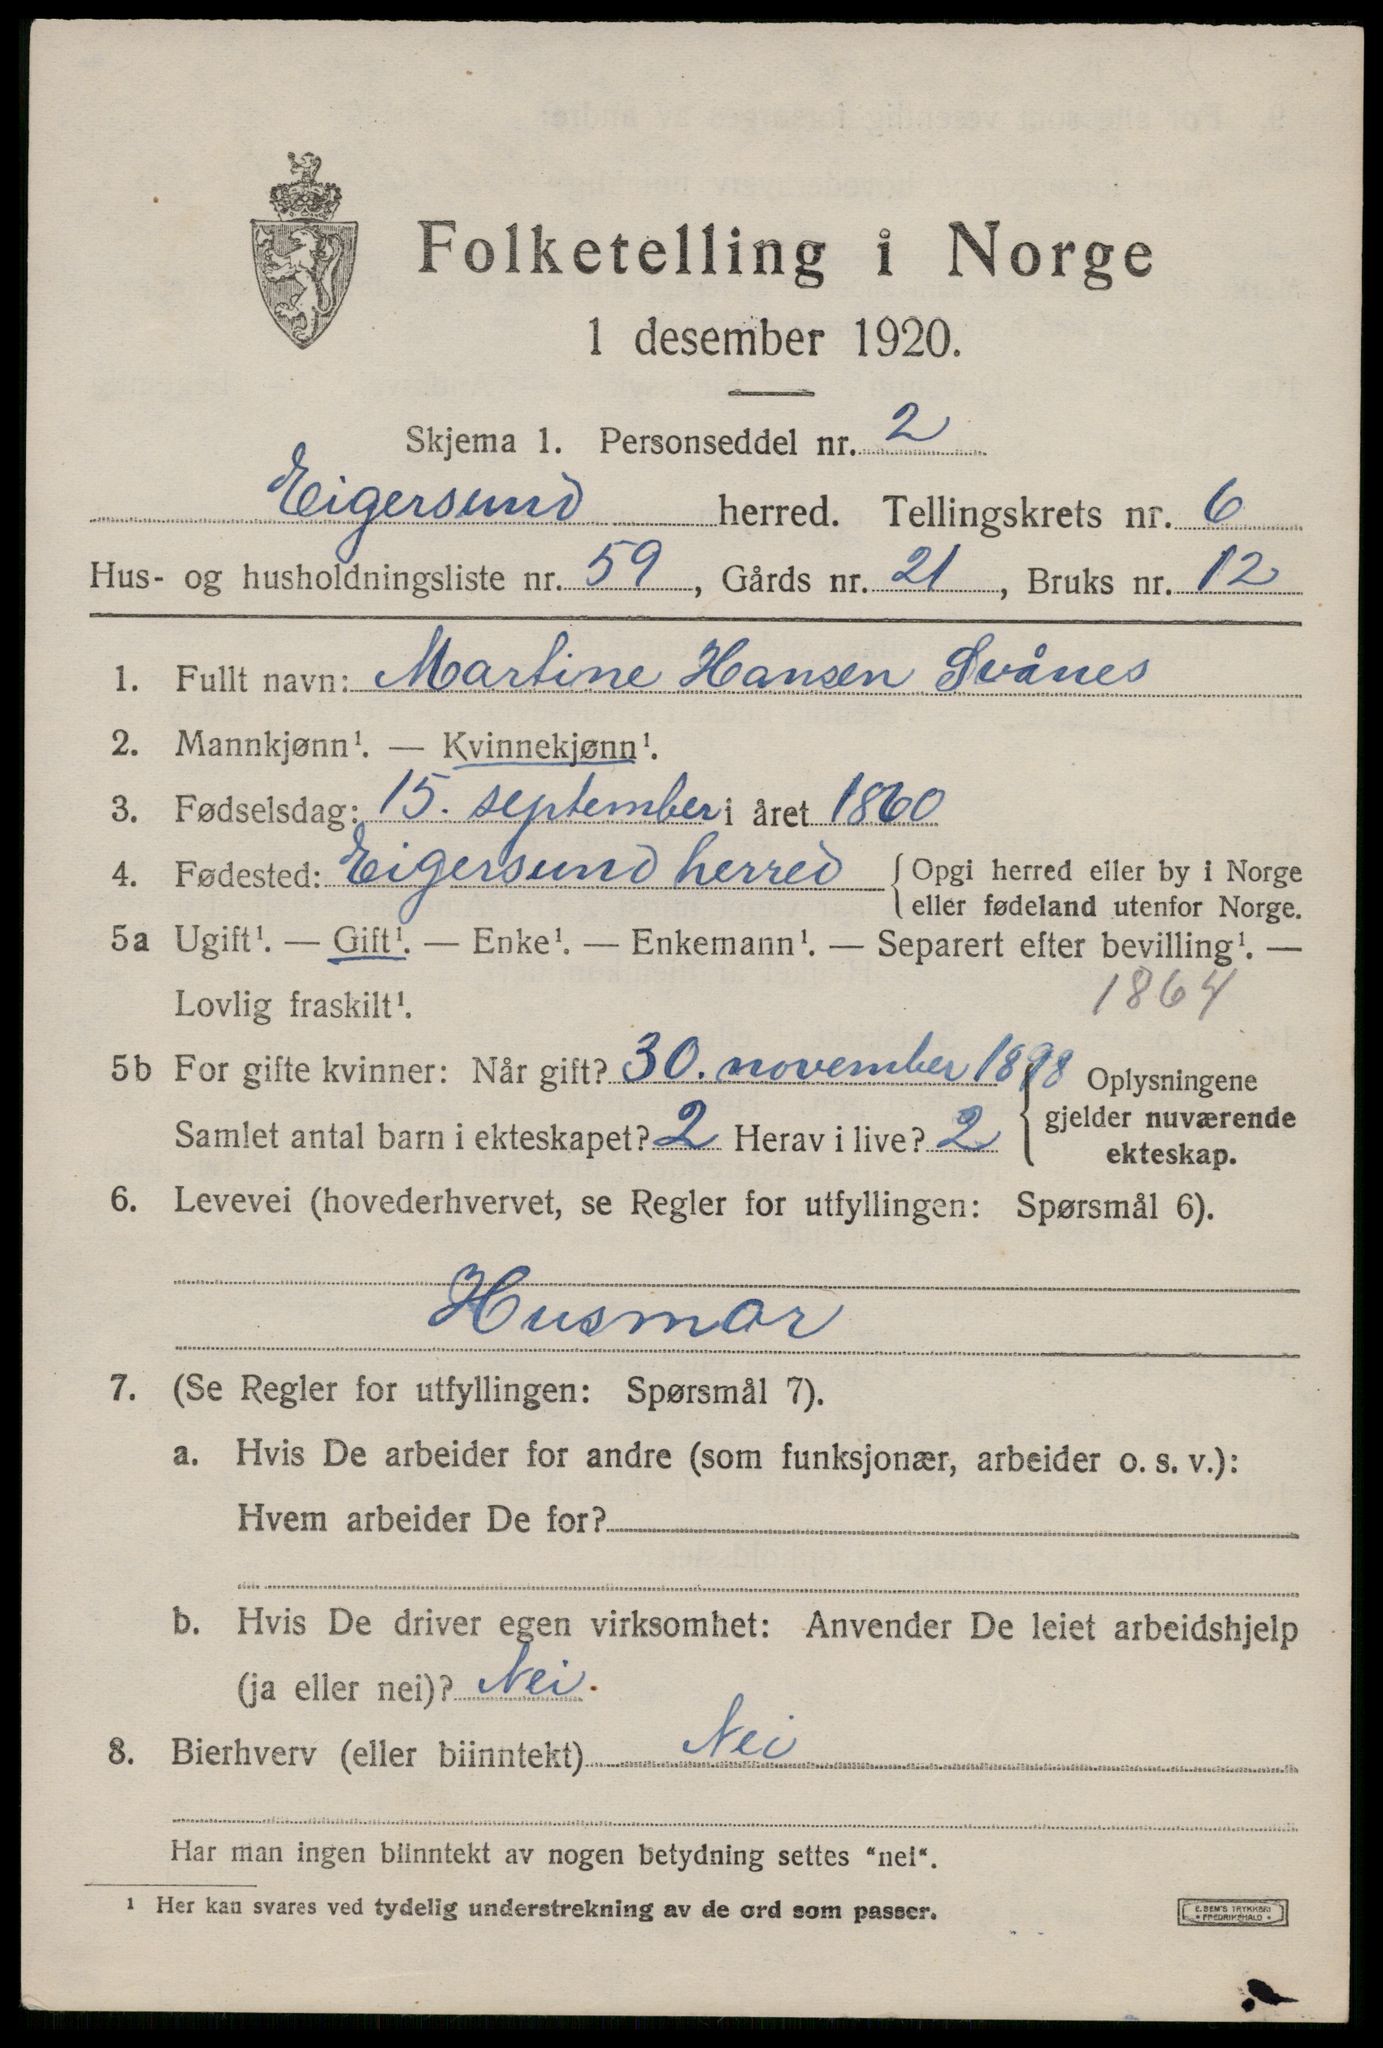 Folketelling i Norge
1 desember 1920.
Skjema 1. Personseddel nr. 2
Eigersund herred. Tellingskrets nr. 6
Hus- og husholdningsliste nr. 59, Gårds nr. 21, Bruks nr. 12
1. Fullt navn: Martine Hansen Svånes
2. Mannkjønn¹. — Kvinnekjønn¹.
3. Fødselsdag: 15. september i året 1860
4. Fødested: Eigersund herred { Opgi herred eller by i Norge
eller fødeland utenfor Norge.
5a Ugift¹. — Gift¹. — Enke¹. — Enkemann¹. — Separert efter bevilling¹. —
Lovlig fraskilt¹. 1864
5b For gifte kvinner: Når gift? 30. november 1898 Oplysningene
gjelder nuværende
Samlet antal barn i ekteskapet? 2 Herav i live? 2
ekteskap.
6. Levevei (hovederhvervet, se Regler for utfyllingen: Spørsmål 6).
Husmor
7. (Se Regler for utfyllingen: Spørsmål 7).
a. Hvis De arbeider for andre (som funksjonær, arbeider o. s. v.):
Hvem arbeider De for?
b. Hvis De driver egen virksomhet: Anvender De leiet arbeidshjelp
(ja eller nei)? Nei.
8. Bierhverv (eller biinntekt) Nei
Har man ingen biinntekt av nogen betydning settes "nei".
¹ Her kan svares ved tydelig understrekning av de ord som passer.
E. SEM'S TRYKKERI
• FREDRIKSHALD •